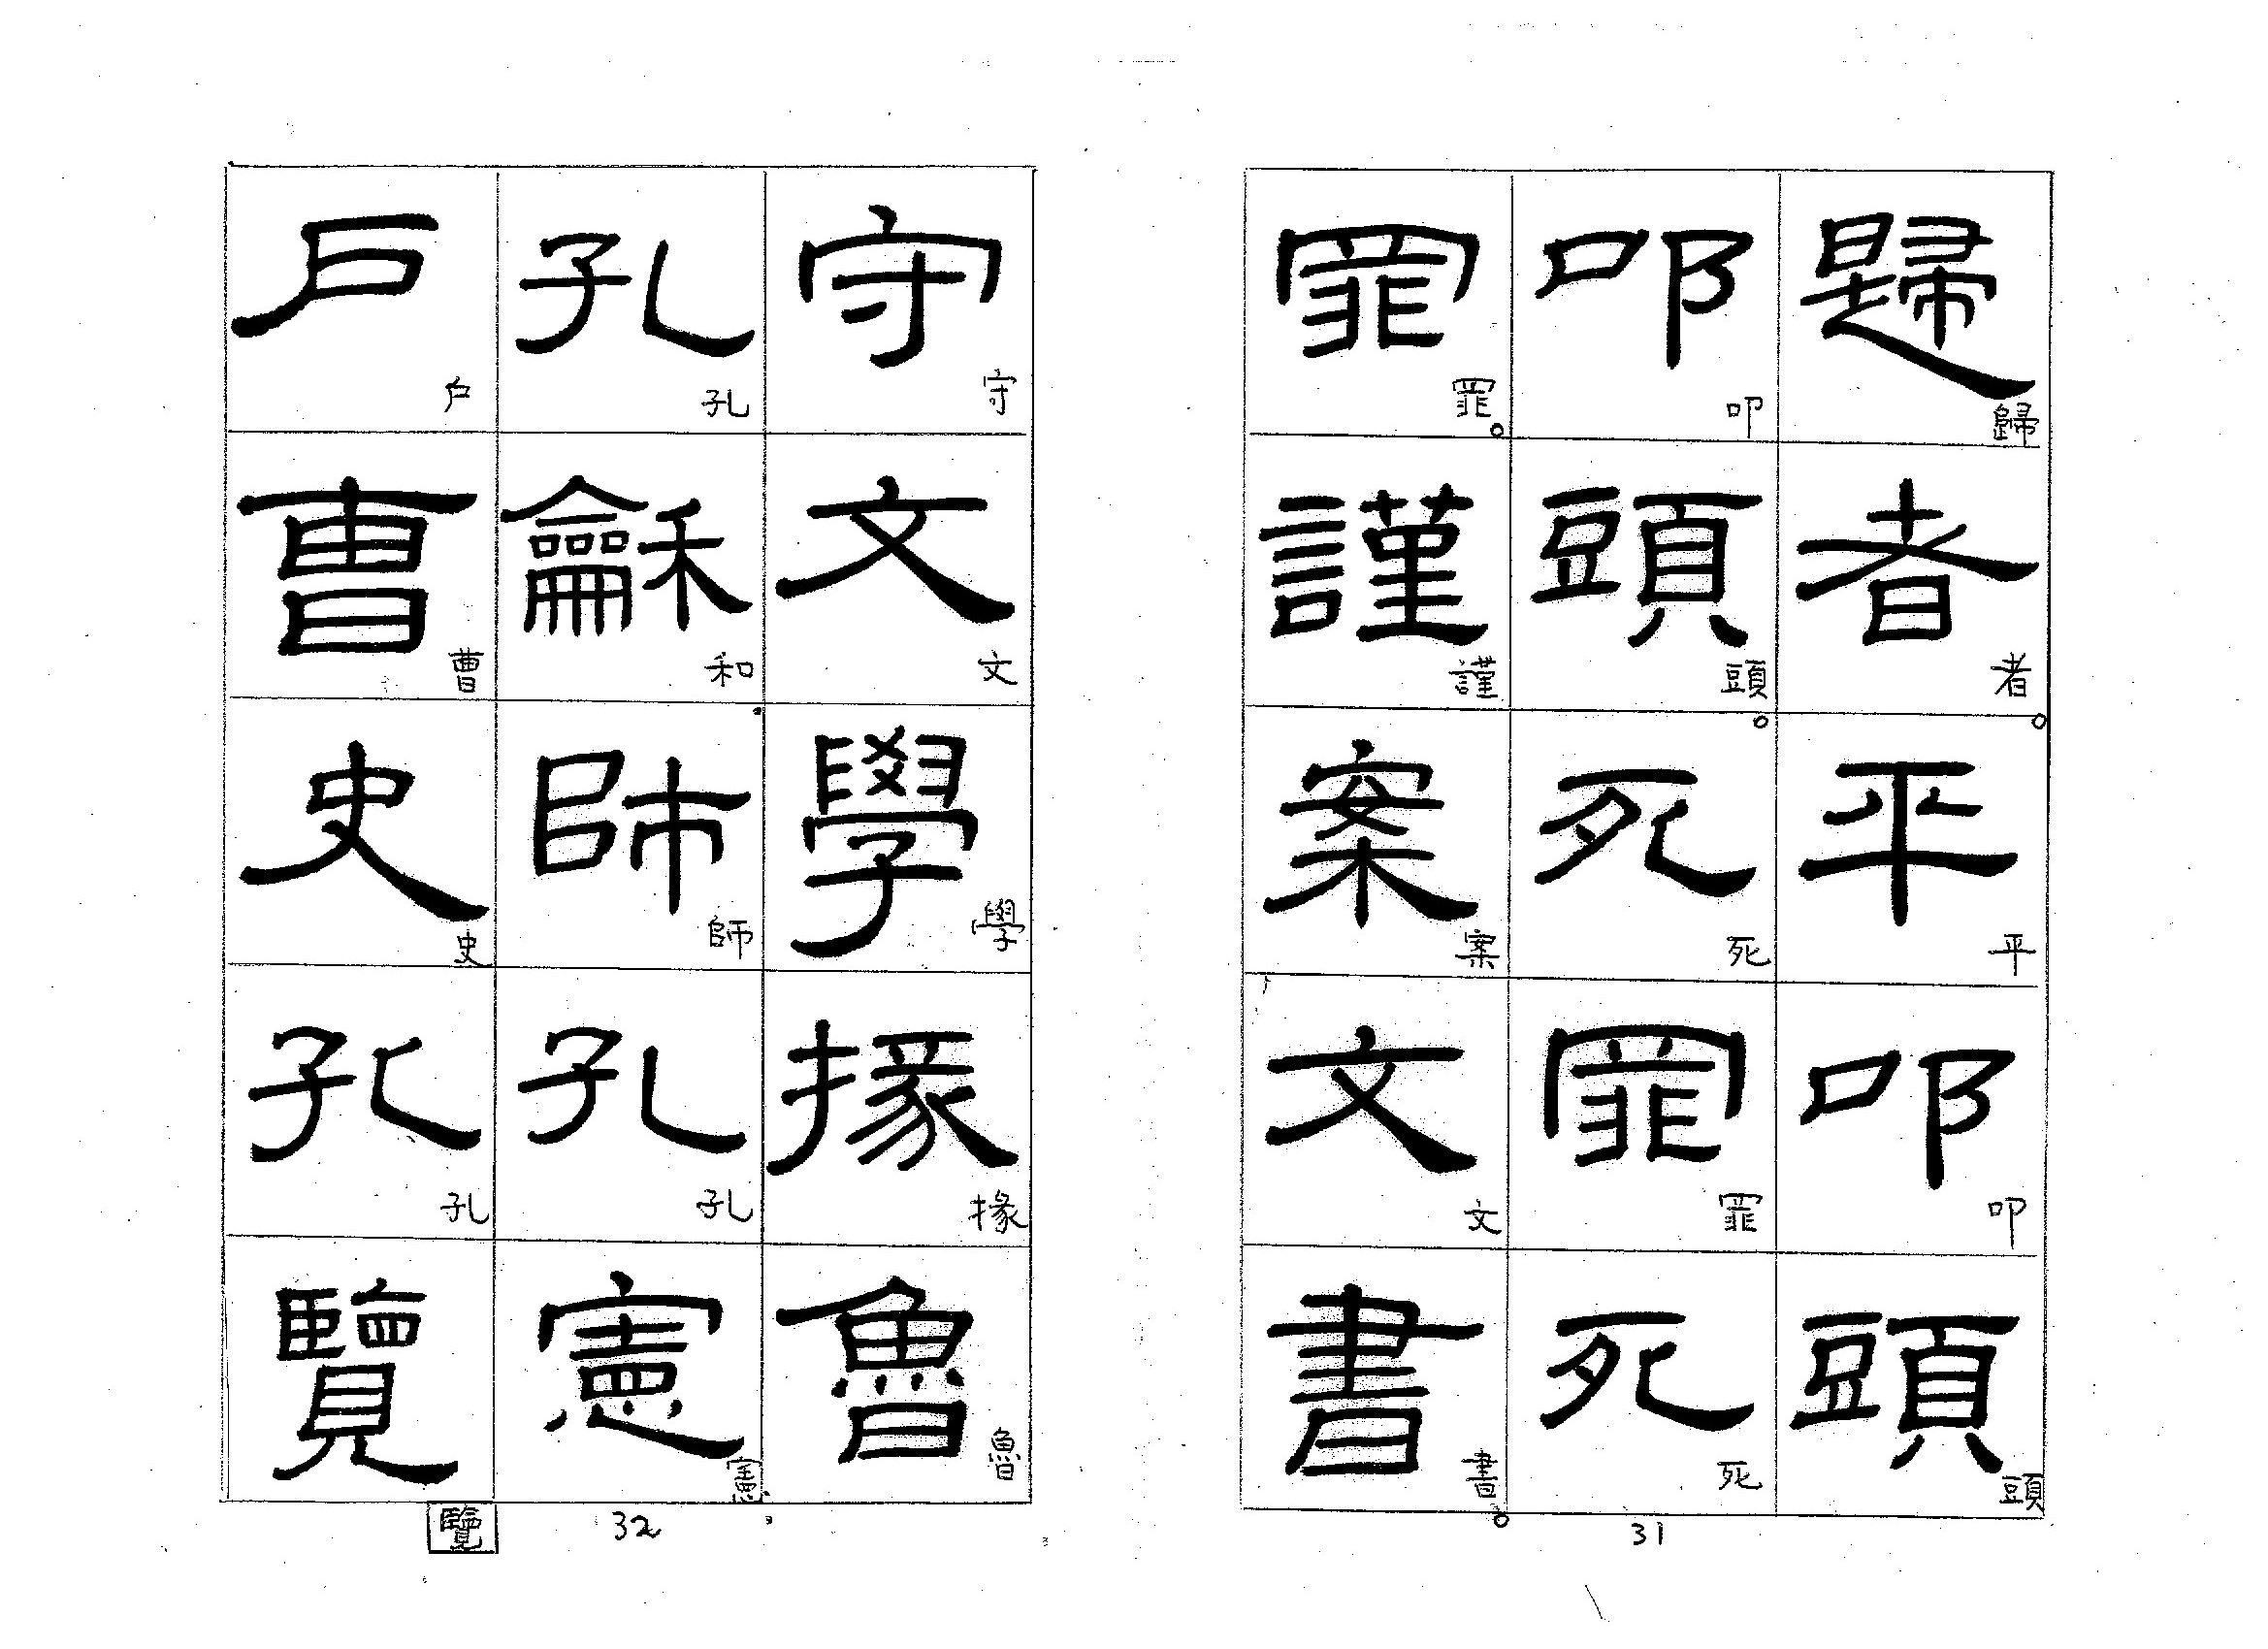 歸者平叩頭
叩頭死罪死
罪謹案文書
31
守文學掾魯
孔龢師孔憲
戶曹史孔覽
32
歸
者。
平
叩
頭
叩
頭。
死
罪
死
罪。
謹
案
文
書。
守
文
學
掾
魯
孔
和
師
孔
憲
戶
曹
史
孔
覽